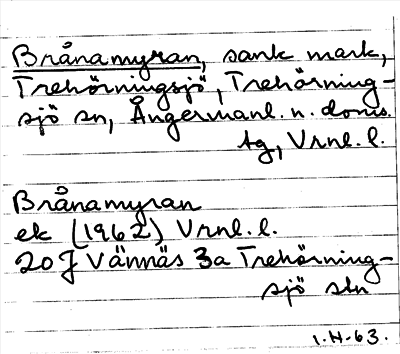 Brånamyran, sank mark,
Trehörningsjö, Trehörning-
sjö sn, Ångermanl. n. doms.
tg, Vrnl. l.
Brånamyran
ek (1962) Vrnl. l.
20 J Vännäs 3a Trehörning-
sjö stn
1.H-63.